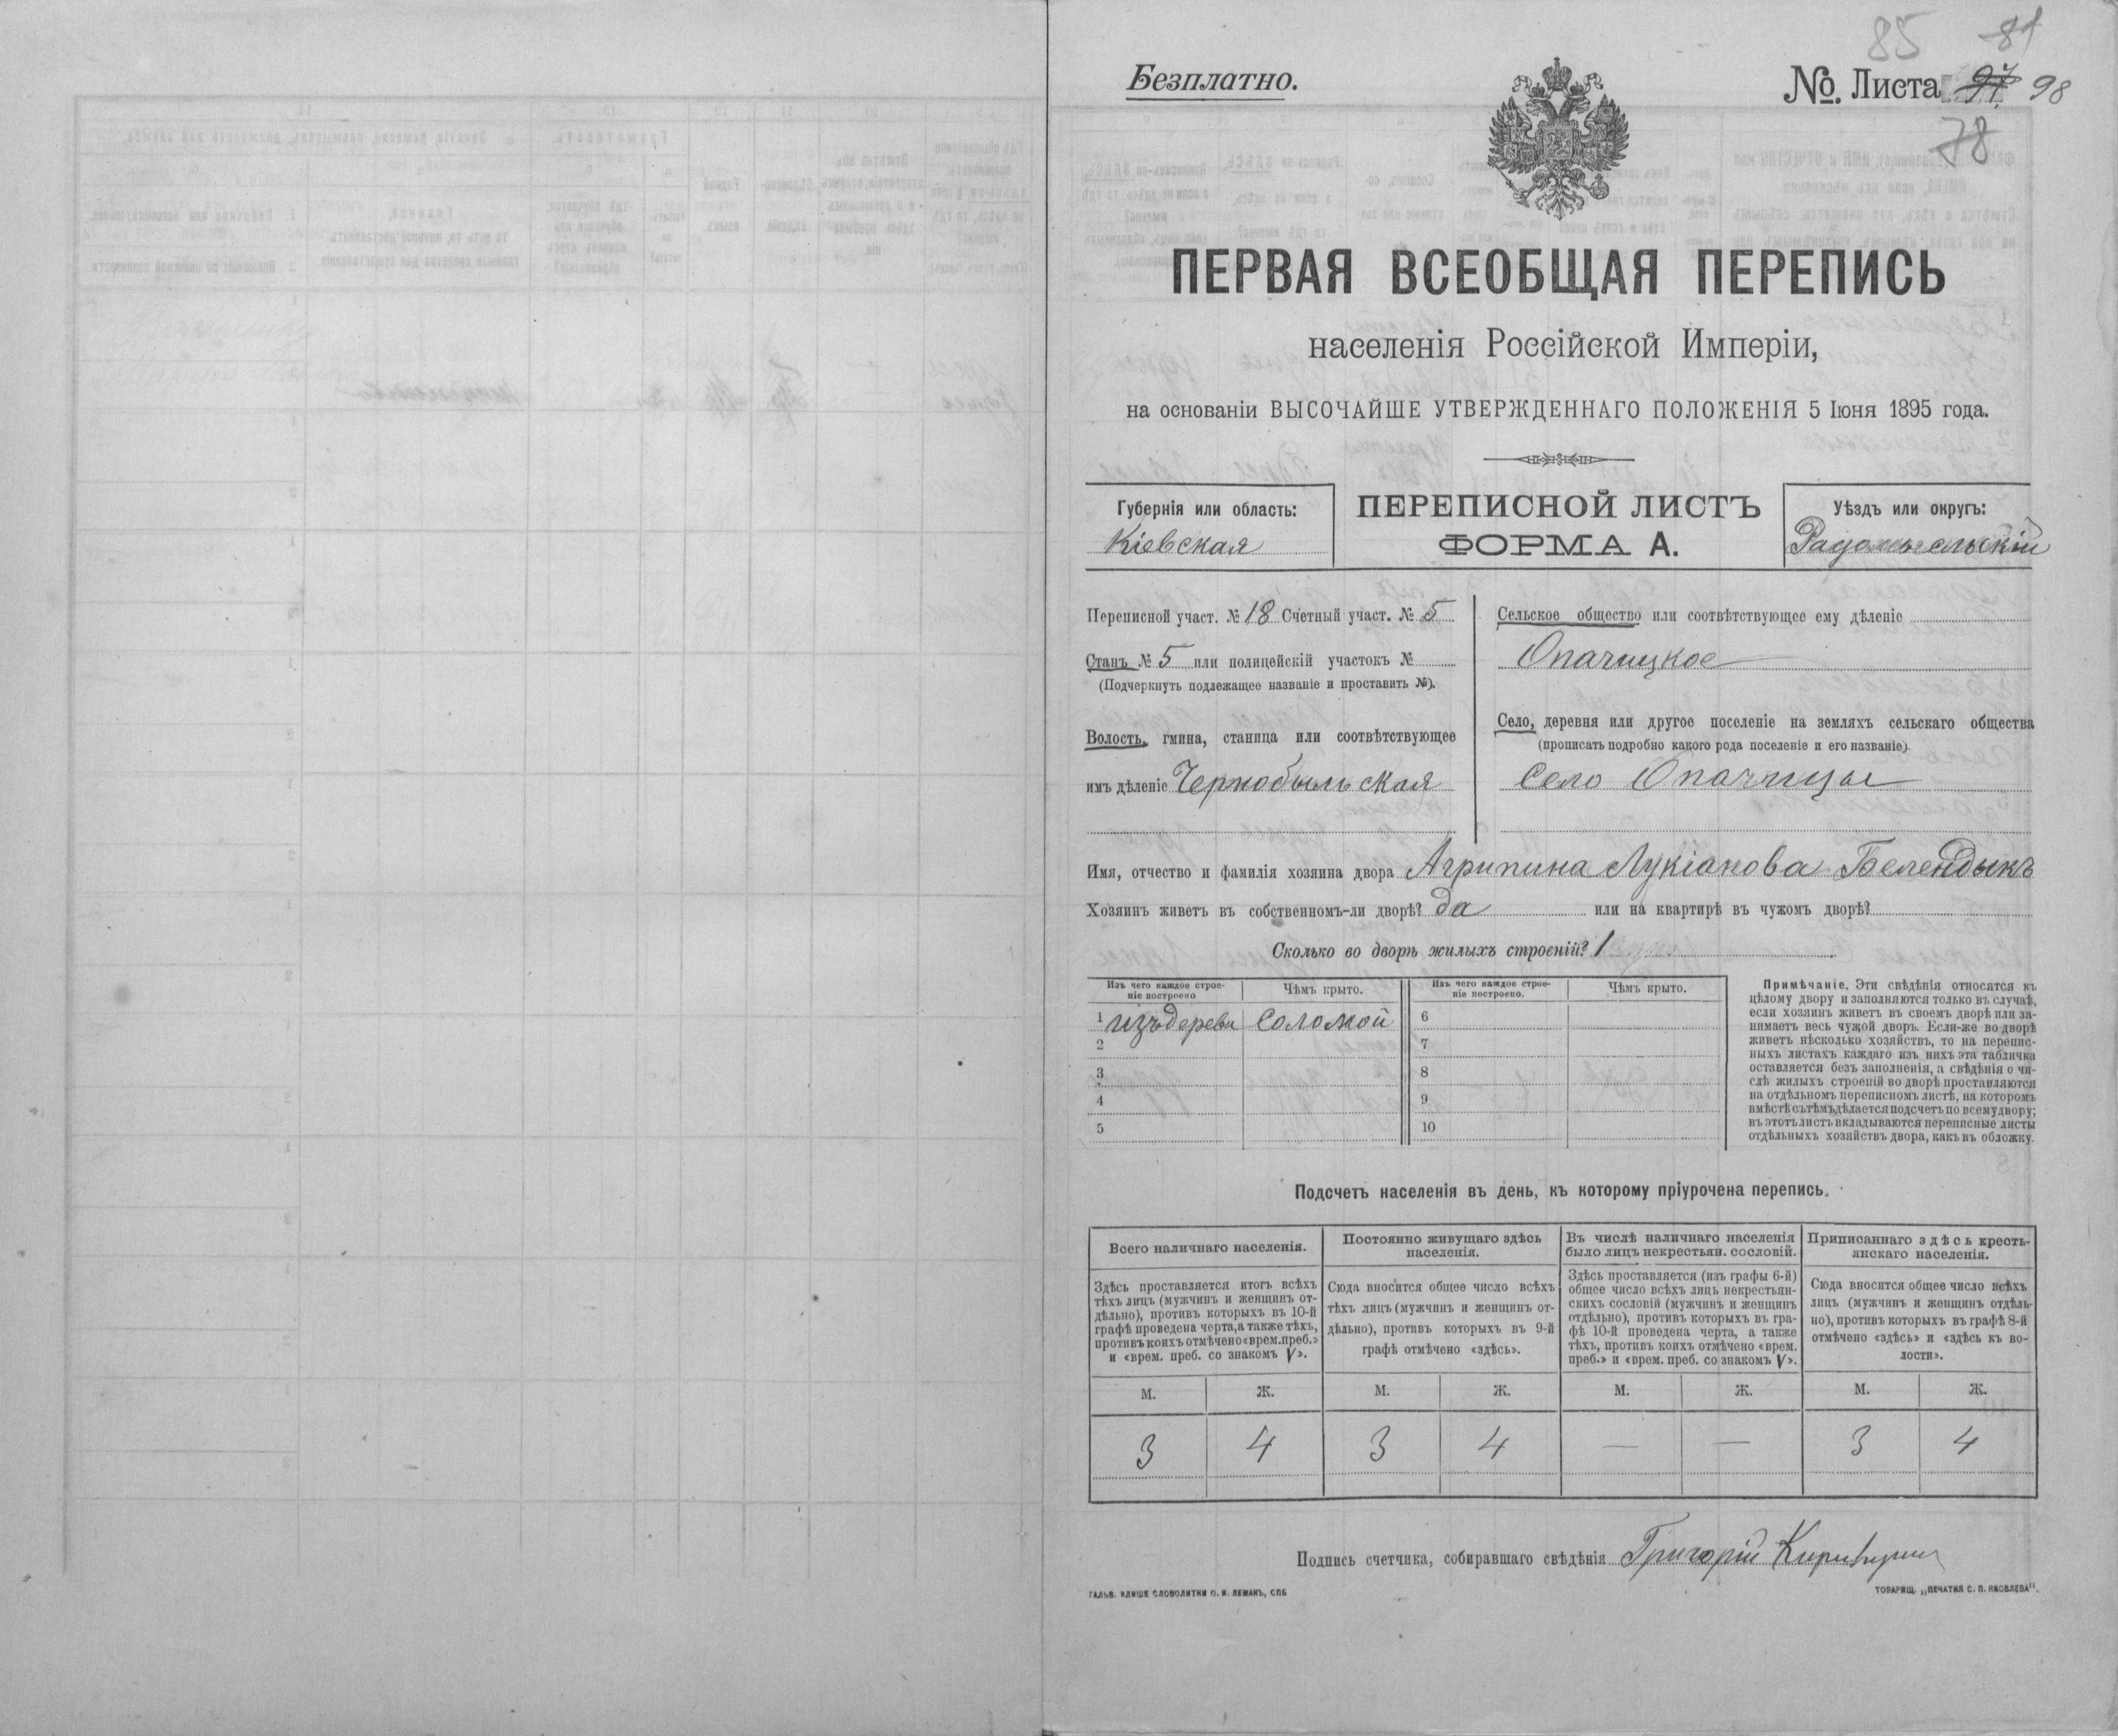 85 81
Безплатно.
№. Листа 97 98
78
ПЕРВАЯ ВСЕОБЩАЯ ПЕРЕПИСЬ
населенія Россійской Имперіи,
на основаніи ВЫСОЧАЙШЕ УТВЕРЖДЕННАГО ПОЛОЖЕНІЯ 5 Іюня 1895 года.
Губернія или область:
Кіевская
ПЕРЕПИСНОЙ ЛИСТЪ
ФОРМА А.
Уѣздъ или округъ:
Радомысльскій
Переписной участ. № 18 Счетный участ. № 5
Станъ № 5 или полицейскій участокъ №
(Подчеркнуть подлежащее названіе и проставить №).
Волость, гмина, станица или соотвѣтствующее
имъ дѣленіе Чернобыльская
Сельское общество или соотвѣтствующее ему дѣленіе
Опачицкое
Село, деревня или другое поселеніе на земляхъ сельскаго общества
(прописать подробно какого рода поселеніе и его названіе)
Село Опачицы
Имя, отчество и фамилія хозяина двора Агрипина Лукіанова Белендыкъ
Хозяинъ живетъ въ собственномъ-ли дворѣ? да или на квартирѣ въ чужомъ дворѣ?
Сколько во дворѣ жилыхъ строеній? 1
Изъ чего каждое строе-
ніе построено
Чѣмъ крыто.
Изъ чего каждое строе-
ніе построено.
Чѣмъ крыто.
1 изъ дерева Соломой 6
2 7
3 8
4 9
5 10
Примѣчаніе. Эти свѣдѣнія относятся къ
цѣлому двору и заполняются только въ случаѣ,
если хозяинъ живетъ въ своемъ дворѣ или за-
нимаетъ весь чужой дворъ. Если-же во дворѣ
живетъ нѣсколько хозяйствъ, то на перепис-
ныхъ листахъ каждаго изъ нихъ эта табличка
оставляется безъ заполненія, а свѣдѣнія о чи-
слѣ жилыхъ строеній во дворѣ проставляются
на отдѣльномъ переписномъ листѣ, на которомъ
вмѣстѣ съ тѣмъ дѣлается подсчетъ по всему двору;
въ этотъ листъ вкладываются переписные листы
отдѣльныхъ хозяйствъ двора, какъ въ обложку.
Подсчетъ населенія въ день, къ которому пріурочена перепись.
Всего наличнаго населенія.
Здѣсь проставляется итогъ всѣхъ
тѣхъ лицъ (мужчинъ и женщинъ от-
дѣльно), противъ которыхъ въ 10-й
графѣ проведена черта, а также тѣхъ,
противъ коихъ отмѣчено «врем. преб.»
и «врем. преб. со знакомъ V».
Постоянно живущаго здѣсь
населенія.
Сюда вносится общее число всѣхъ
тѣхъ лицъ (мужчинъ и женщинъ от-
дѣльно), противъ которыхъ въ 9-й
графѣ отмѣчено «здѣсь».
Въ числѣ наличнаго населенія
было лицъ некрестьян. сословій.
Здѣсь проставляется (изъ графы 6-й)
общее число всѣхъ лицъ некрестьян-
скихъ сословій (мужчинъ и женщинъ
отдѣльно), противъ которыхъ въ гра-
фѣ 10-й проведена черта, а также
тѣхъ, противъ коихъ отмѣчено «врем.
преб.» и «врем. преб. со знакомъ V».
Приписаннаго здѣсь кресть-
янскаго населенія.
Сюда вносится общее число всѣхъ
лицъ (мужчинъ и женщинъ отдѣль-
но), противъ которыхъ въ графѣ 8-й
отмѣчено «здѣсь» и «здѣсь къ во-
лости».
М. Ж. М. Ж. М. Ж. М. Ж.
3 4 3 4 — — 3 4
Подпись счетчика, собиравшаго свѣдѣнія Григорій
ГАЛЬВ. КЛИШЕ СЛОВОЛИТНИ О. И. ЛЕМАНЪ, СПБ
ТОВАРИЩ. „ПЕЧАТНЯ С. П. ЯКОВЛЕВА".